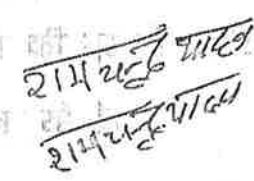 रामचन्द्र यादव
रामचन्द्र यादव